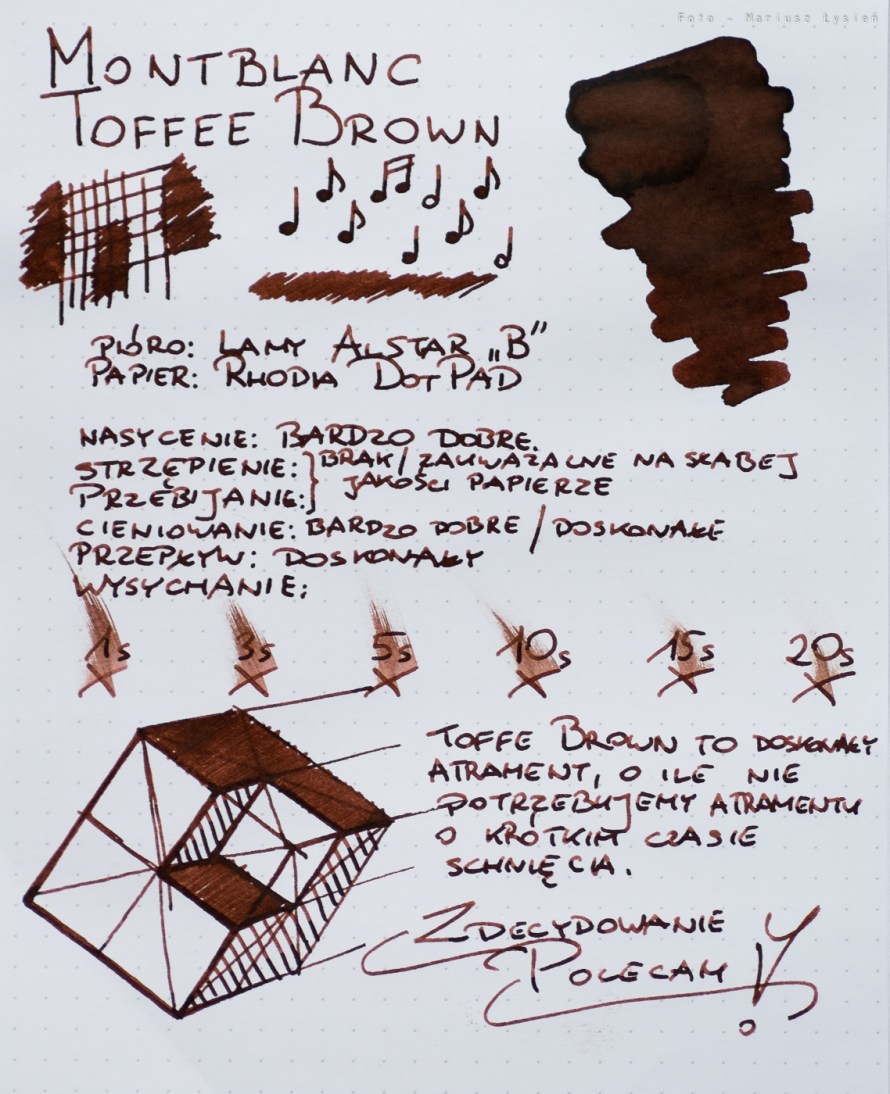 Foto - Mariusz Łysień
MONTBLANC
TOFFEE BROWN
PIÓRO: LAMY ALSTAR „B”
PAPIER: RHODIA DOTPAD
NASYCENIE: BARDZO DOBRE.
STRZĘPIENIE: } BRAK/ZAUWAŻALNE NA SŁABEJ
PRZEBIJANIE: } JAKOŚCI PAPIERZE
CIENIOWANIE: BARDZO DOBRE / DOSKONAŁE
PRZEPŁYW: DOSKONAŁY
WYSYCHANIE:
1s 3s 5s 10s 15s 20s
TOFFE BROWN TO DOSKONAŁY
ATRAMENT, O ILE NIE
POTRZEBUJEMY ATRAMENTU
O KRÓTKIM CZASIE
SCHNIĘCIA.
ZDECYDOWANIE
POLECAM!